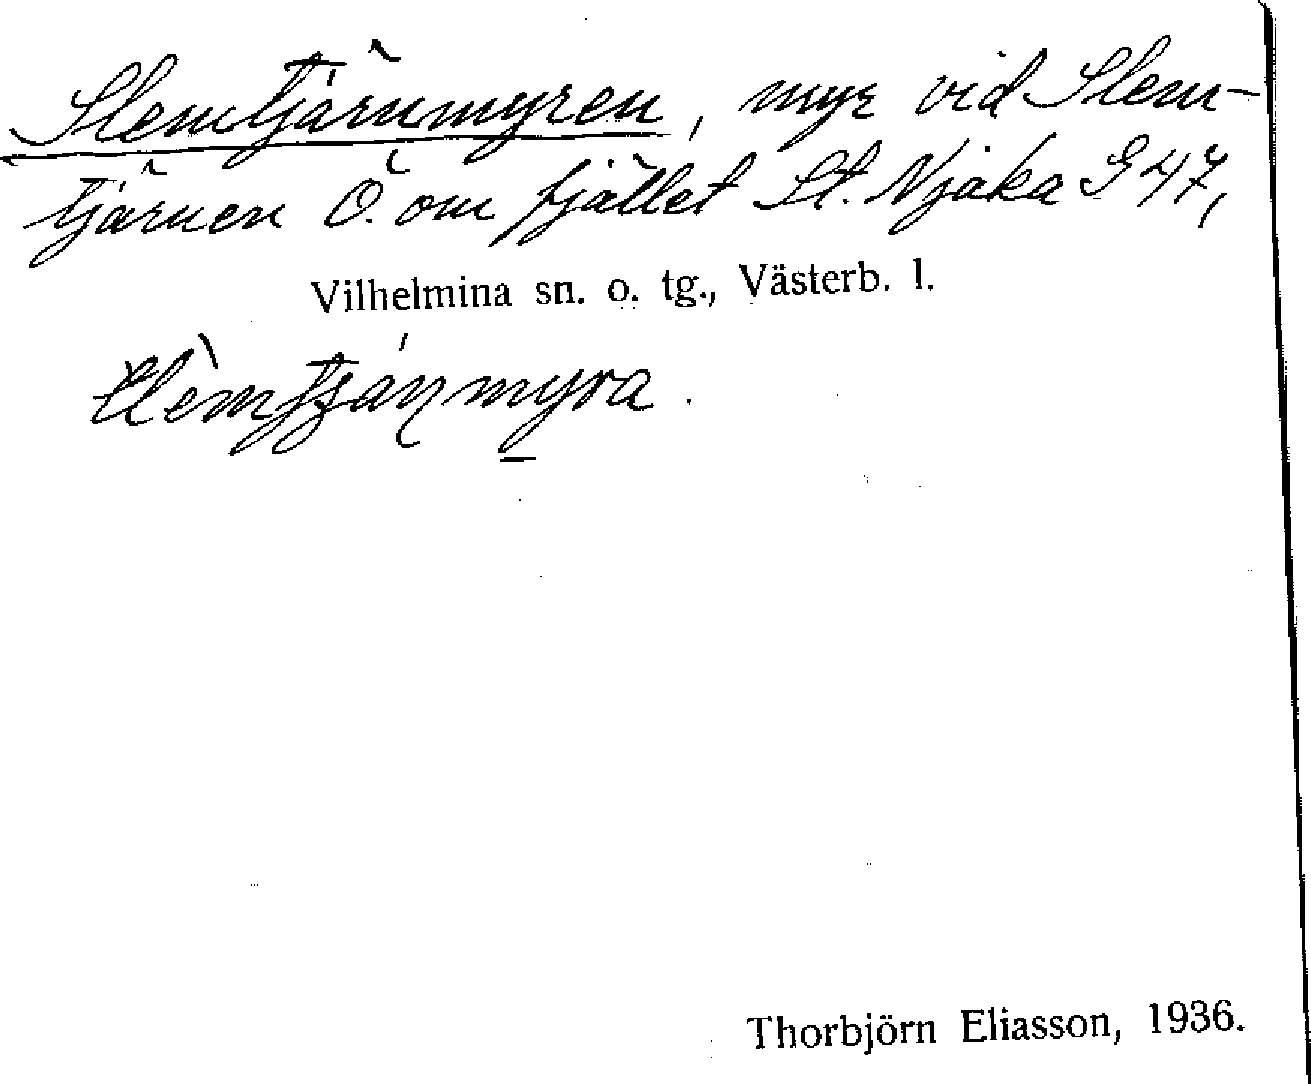 Slemtjärnmyren, myr vid Slem-
tjärnen Ö. om fjället St. Njåka G 47,
Vilhelmina sn. o. tg., Västerb. l.
Thorbjörn Eliasson, 1936.